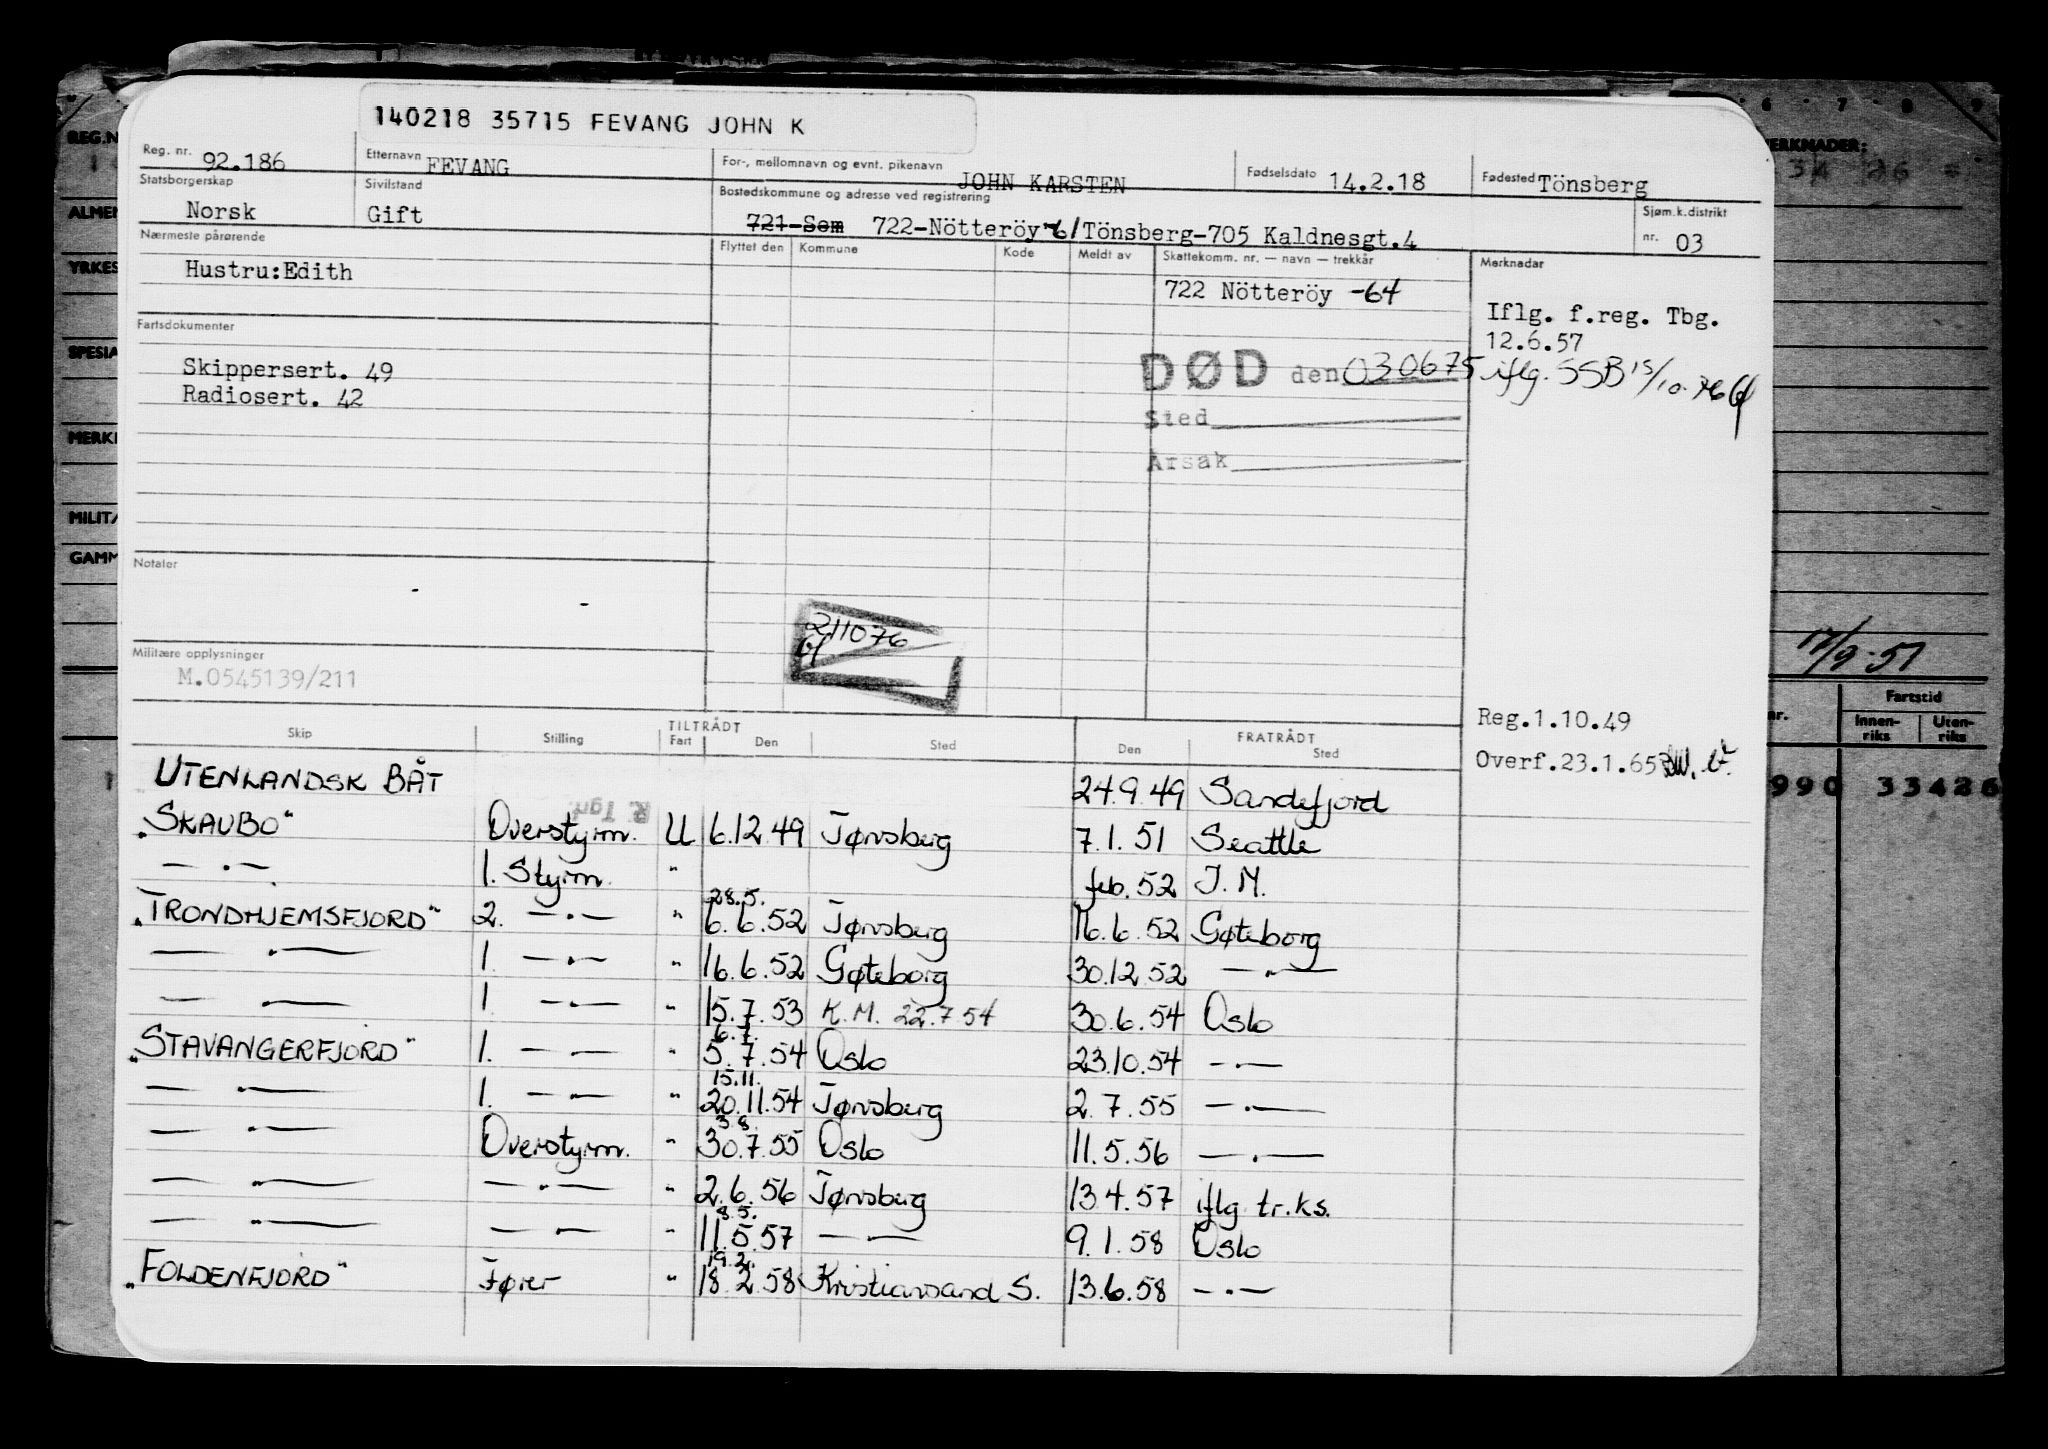 140218 35715 FEVANG JOHN K
Reg. nr. 92.186
Etternavn FEVANG
For-, mellomnavn og evnt. pikenavn JOHN KARSTEN
Fødselsdato 14.2.18
Fødested Tönsberg
Statsborgerskap Norsk
Sivilstand Gift
Bostedskommune og adresse ved registrering
721-Sem 722-Nötteröy-61 Tönsberg-705 Kaldnesgt.4
Sjøm.k.distrikt nr. 03
Nærmeste pårørende
Hustru:Edith
Flyttet den Kommune Kode Meldt av Skattekomm. nr. — navn — trekkår
722 Nötteröy -64
Merknader
Iflg. f.reg. Tbg.
12.6.57
Fartsdokumenter
Skippersert. 49
Radiosert. 42
DØD den 030675 iflg. SSB 15/10.76
Sted
Årsak
Notater
211076
Militære opplysninger
M.0545139/211
Reg.1.10.49
Overf.23.1.65
Skip Stilling TILTRÅDT Fart Den Sted FRATRÅDT Den Sted
UTENLANDSK BÅT 24.9.49 Sandefjord
R. Tgn.
"SKAUBO" Overstyrm. U 6.12.49 Tønsberg 7.1.51 Seattle
— . — 1. Styrm. " feb.52 I.M.
28.5.
"TRONDHJEMSFJORD" 2. — . — " 6.6.52 Tønsberg 16.6.52 Gøteborg
— . — 1. — . — " 16.6.52 Gøteborg 30.12.52 — . —
— . — 1. — . — " 15.7.53 K.M. 22.7.54 30.6.54 Oslo
6.7.
"STAVANGERFJORD" 1. — . — " 5.7.54 Oslo 23.10.54 — . —
15.11.
— . — 1. — . — " 20.11.54 Tønsberg 2.7.55 — . —
3.8.
— . — Overstyrm. " 30.7.55 Oslo 11.5.56 — . —
— . — — . — " 2.6.56 Tønsberg 13.4.57 iflg tr.ks.
8.5.
— . — — . — " 11.5.57 — . — 9.1.58 Oslo
19.2.
"FOLDENFJORD" Fører " 18.2.58 Kristiansand S. 13.6.58 — . —
REG.N
ALMEN
YRKES
SPESIA
MERK
MILITÆ
GAMM
6 7 8 9
ERKNADER:
17/9-51
nr.
Fartstid
Innen-
riks
Uten-
riks
990 33426